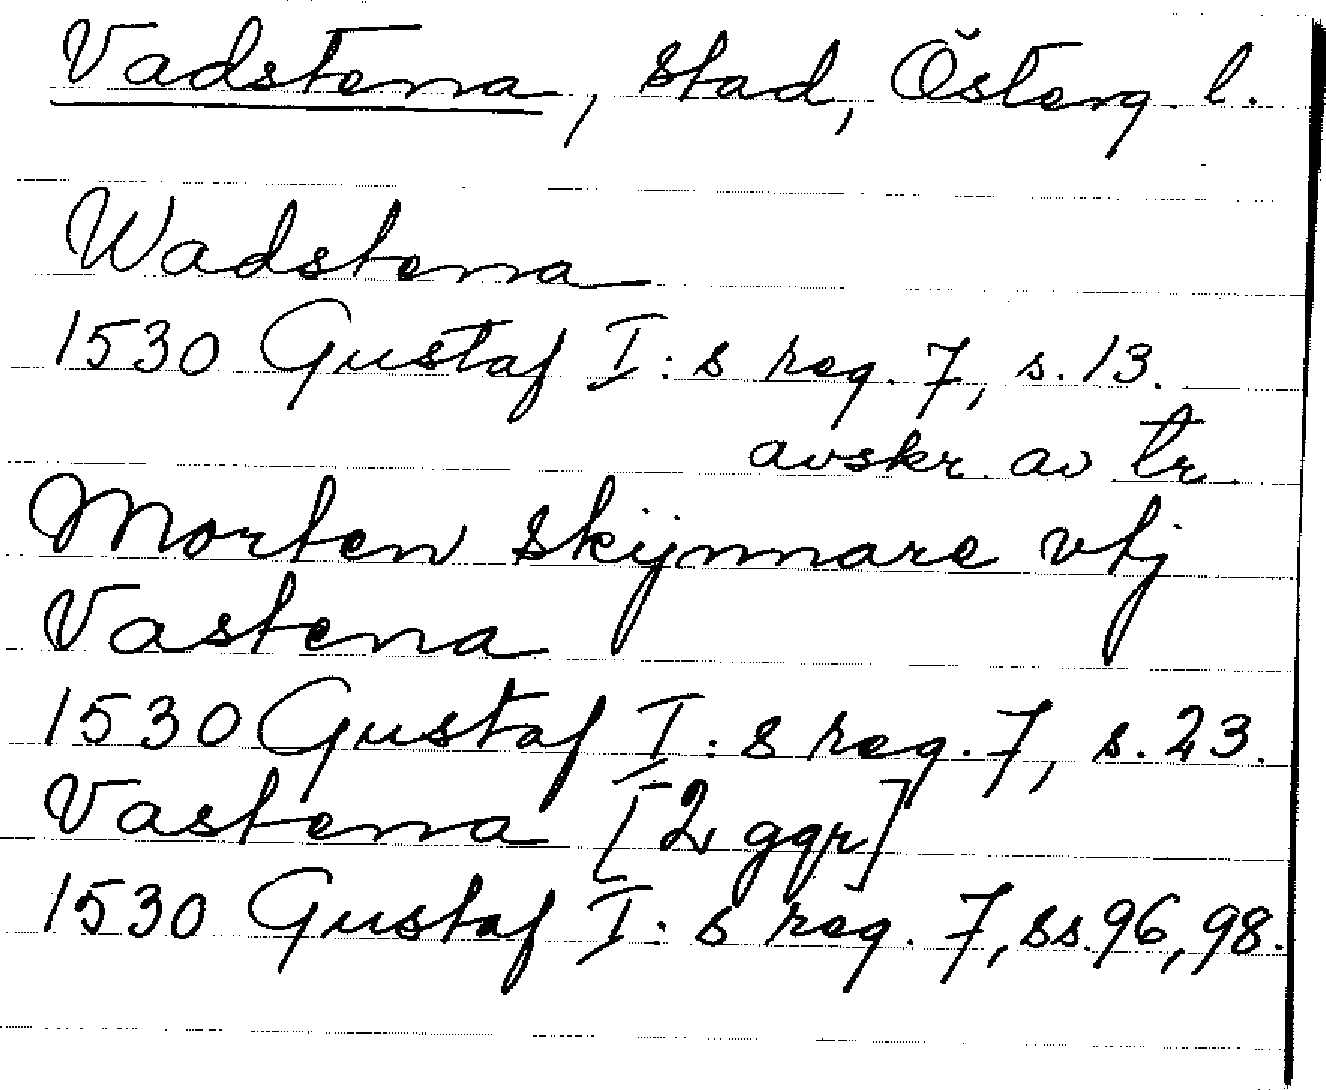 Vadstena, stad, Österg. l.
Wadstena
1530 Gustaf I:s reg. 7, s. 13.
avskr. av tr.
Morten skijnnare vtj
Vastena
1530 Gustaf I:s reg. 7, s. 23.
Vastena [2 ggr]
1530 Gustaf I:s reg. 7, ss. 96, 98.